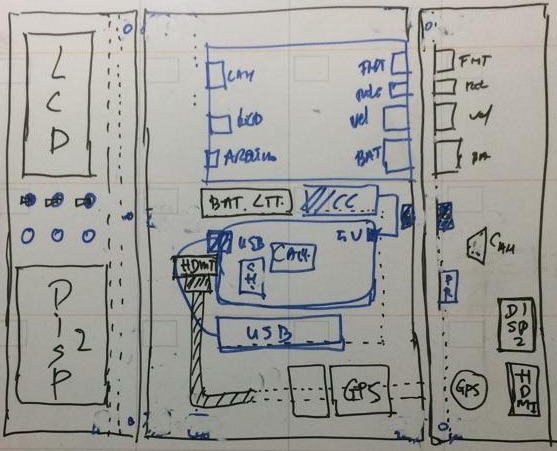 LCD
DISP 2
CAM
LCD
ARDUINO
FMT
Vel
BAT
BAT. LTT.
CC
USB
CAM
5V
HDMI
USB
GPS
FMT
Vel
BA
CAM
DISP 2
GPS
HDMI